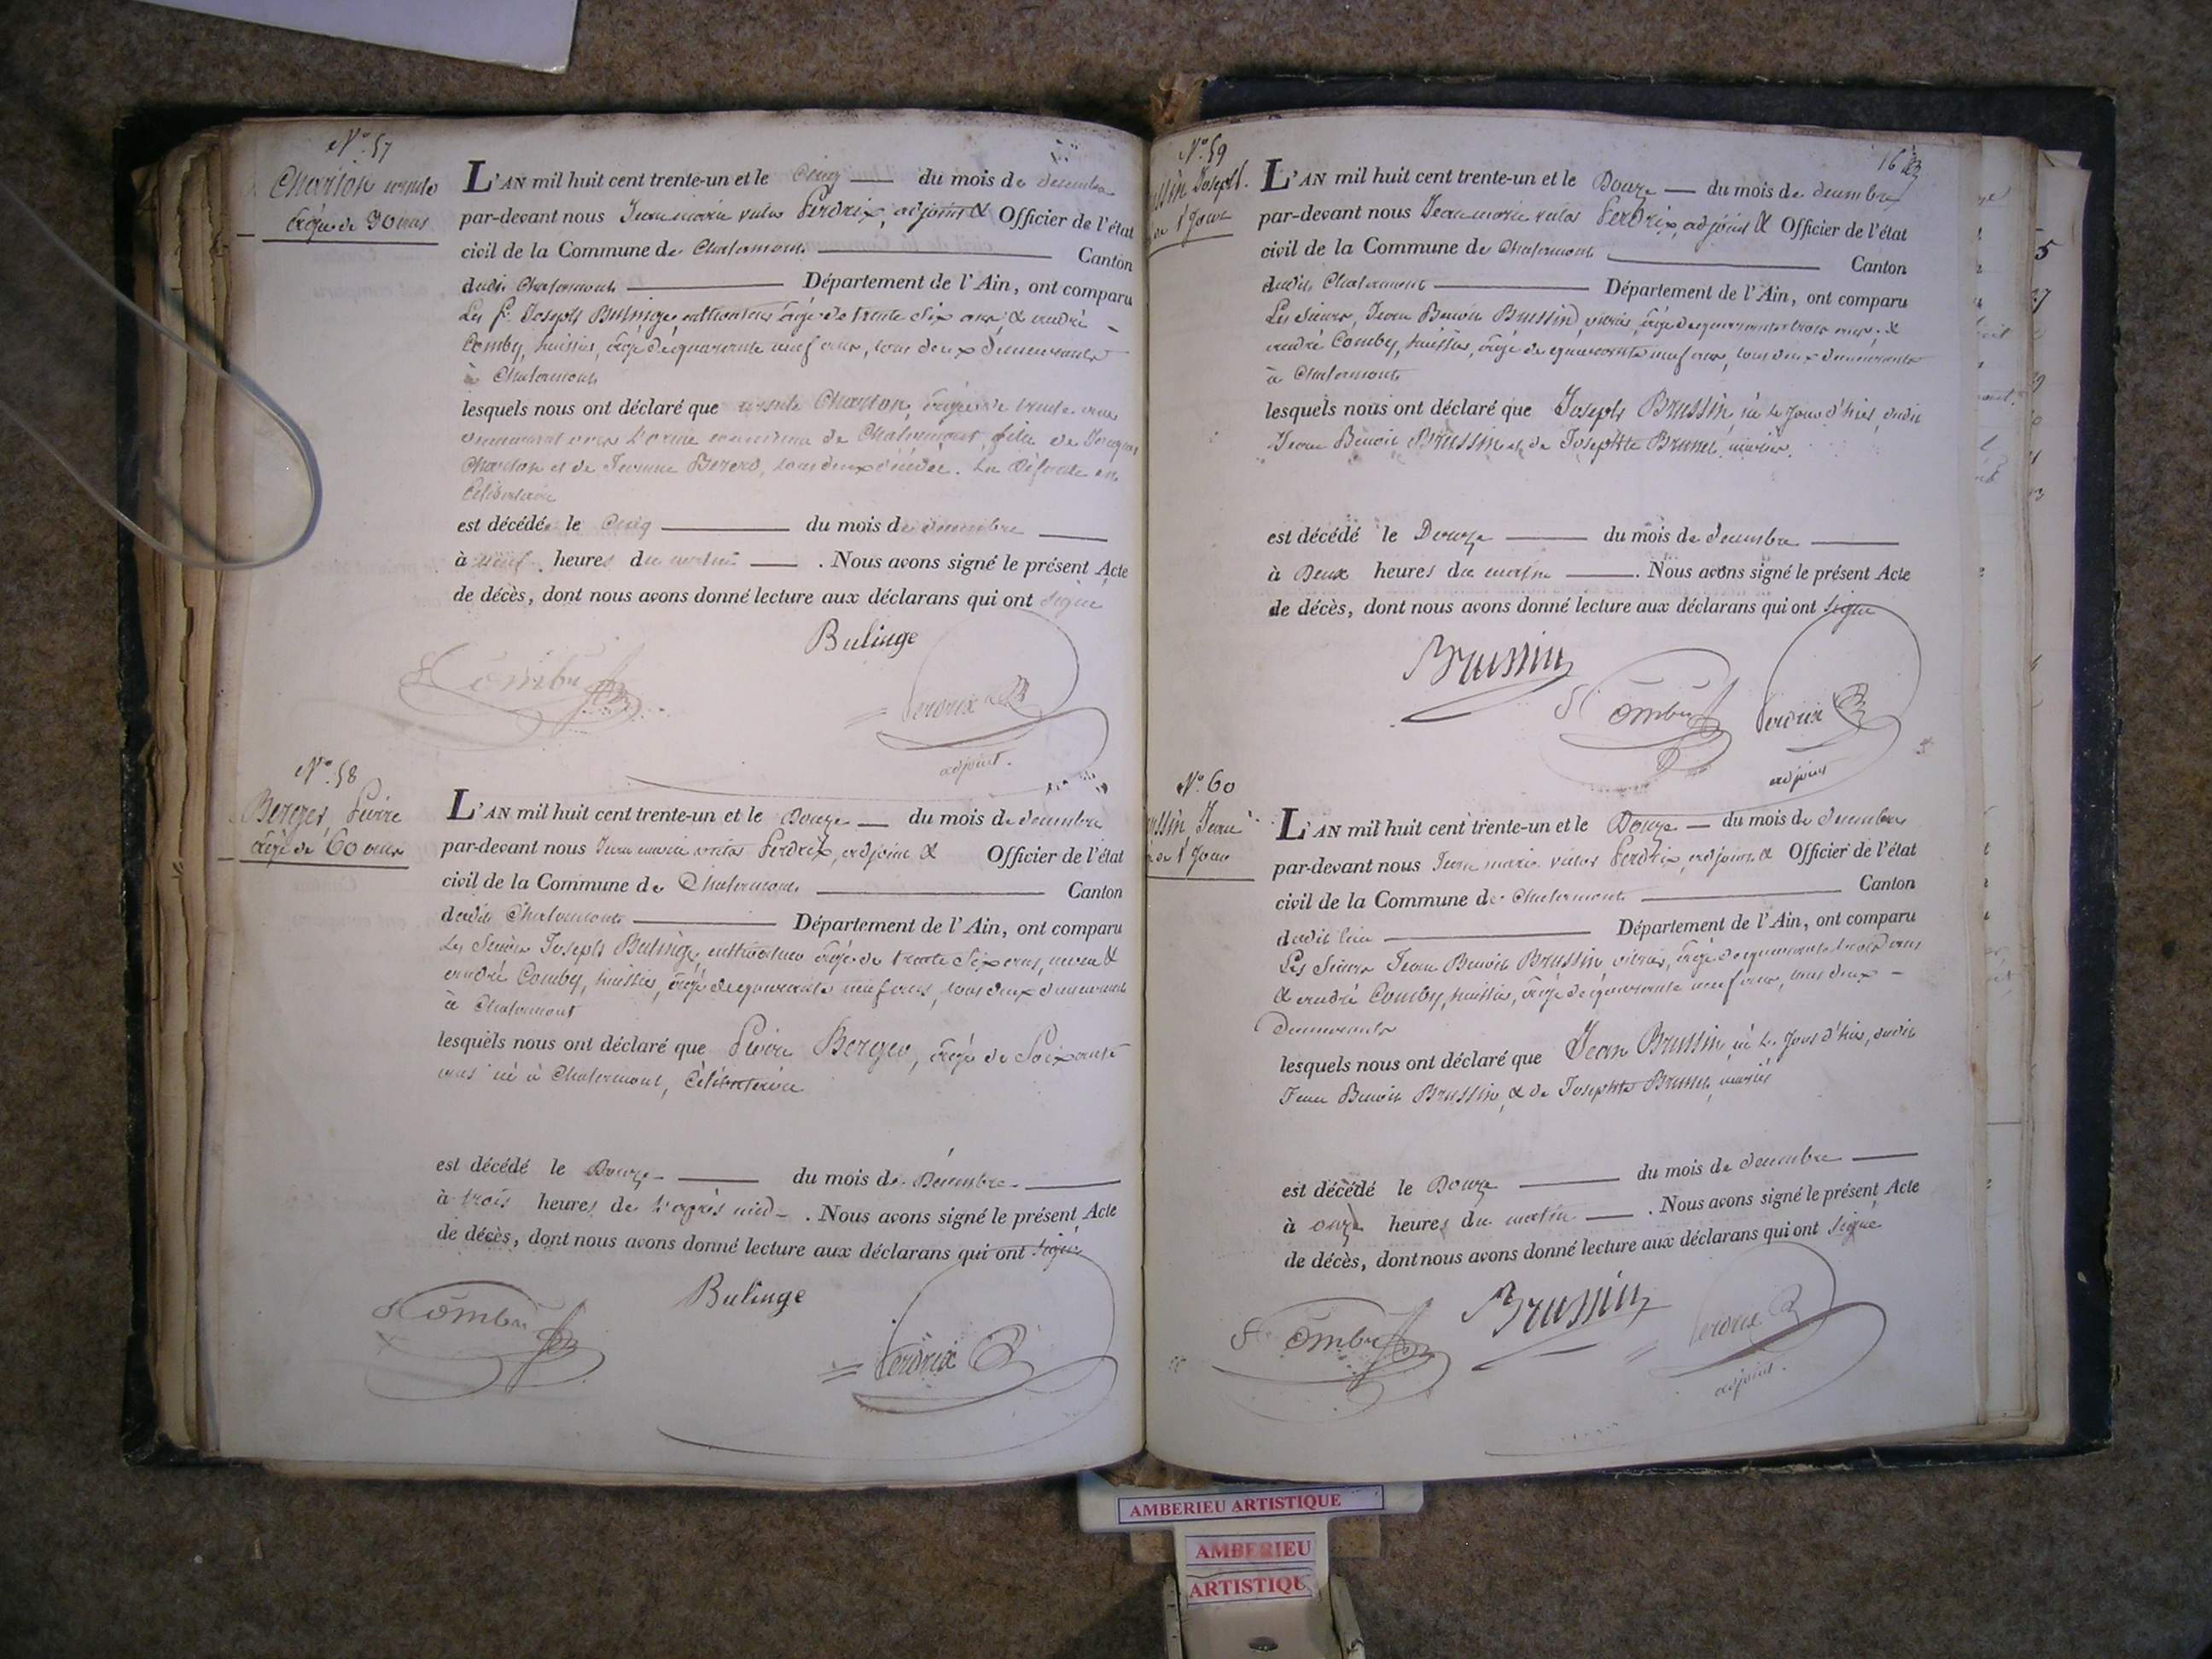 N° 57
Charton ursule
âgée de 30 ans
L'AN mil huit cent trente-un et le Cinq du mois de décembre
par-devant nous Jean marie Perdrix, adjoint & Officier de l'état
civil de la Commune de Chalamont Canton
dudit Chalamont Département de l'Ain, ont comparu
Les Sr Joseph Bulinge, cultivateur âgé de trente Six ans & andré
Comby, huissier, âgé de quarante neuf ans, tous deux demeurants
à Chalamont
lesquels nous ont déclaré que ursule Charton, âgée de trente ans
demeurant commune de Chalamont fille de Jacques
Charton et de Jeanne tous deux décédés. La défunte en
Célibataire
est décédée le Cinq du mois de décembre
à neuf heures du matin . Nous avons signé le présent Acte
de décès, dont nous avons donné lecture aux déclarans qui ont signé
Comby
Bulinge
Perdrix
adjoint.
N° 58
Berger, Pierre
âgé de 60 ans
L'AN mil huit cent trente-un et le Douze du mois de décembre
par-devant nous Jean marie Perdrix, adjoint & Officier de l'état
civil de la Commune de Chalamont Canton
dudit Chalamont Département de l'Ain, ont comparu
Les Sieurs Joseph Bulinge, cultivateur âgé de trente Six ans, &
andré Comby, huissier, âgé de quarante neuf ans, tous deux demeurants
à Chalamont
lesquels nous ont déclaré que Pierre Berger, âgé de Soixante
ans né à Chalamont, Célibataire
est décédé le Douze du mois de Décembre
à trois heures de l'après midi . Nous avons signé le présent Acte
de décès, dont nous avons donné lecture aux déclarans qui ont signé
Comby
Bulinge
Perdrix
N° 59
ssin Joseph.
de 1 Jour
L'AN mil huit cent trente-un et le Douze du mois de décembre
par-devant nous Jean marie Perdrix, adjoint & Officier de l'état
civil de la Commune de Chalamont Canton
dudit Chalamont Département de l'Ain, ont comparu
Les Sieurs, Jean Benoit Brussin, âgé de quarante trois ans, &
andré Comby, huissier, âgé de quarante neuf ans, tous deux demeurants
à Chalamont
lesquels nous ont déclaré que Joseph Brussin, né le Jour d'hier, dudit
Jean Benoit Brussin et de Josephte Brunet, mariés.
est décédé le Douze du mois de décembre
à Deux heures du matin . Nous avons signé le présent Acte
de décès, dont nous avons donné lecture aux déclarans qui ont signé
Brussin
Comby
Perdrix
adjoint
N° 60
ussin Jean
de 1 Jour
L'AN mil huit cent trente-un et le Douze du mois de décembre
par-devant nous Jean marie Perdrix, adjoint & Officier de l'état
civil de la Commune de Chalamont Canton
dudit lieu Département de l'Ain, ont comparu
Les Sieurs Jean Benoit Brussin, âgé de quarante trois ans
& andré Comby, huissier, âgé de quarante neuf ans, tous deux
Demeurants
lesquels nous ont déclaré que Jean Brussin, né le Jour d'hier, dudit
Jean Benoit Brussin, & de Josephte Brunet, mariés
est décédé le Douze du mois de décembre
à onze heures du matin . Nous avons signé le présent Acte
de décès, dont nous avons donné lecture aux déclarans qui ont signé
Comby
Brussin
Perdrix
adjoint.
AMBERIEU ARTISTIQUE
AMBERIEU
ARTISTIQUE